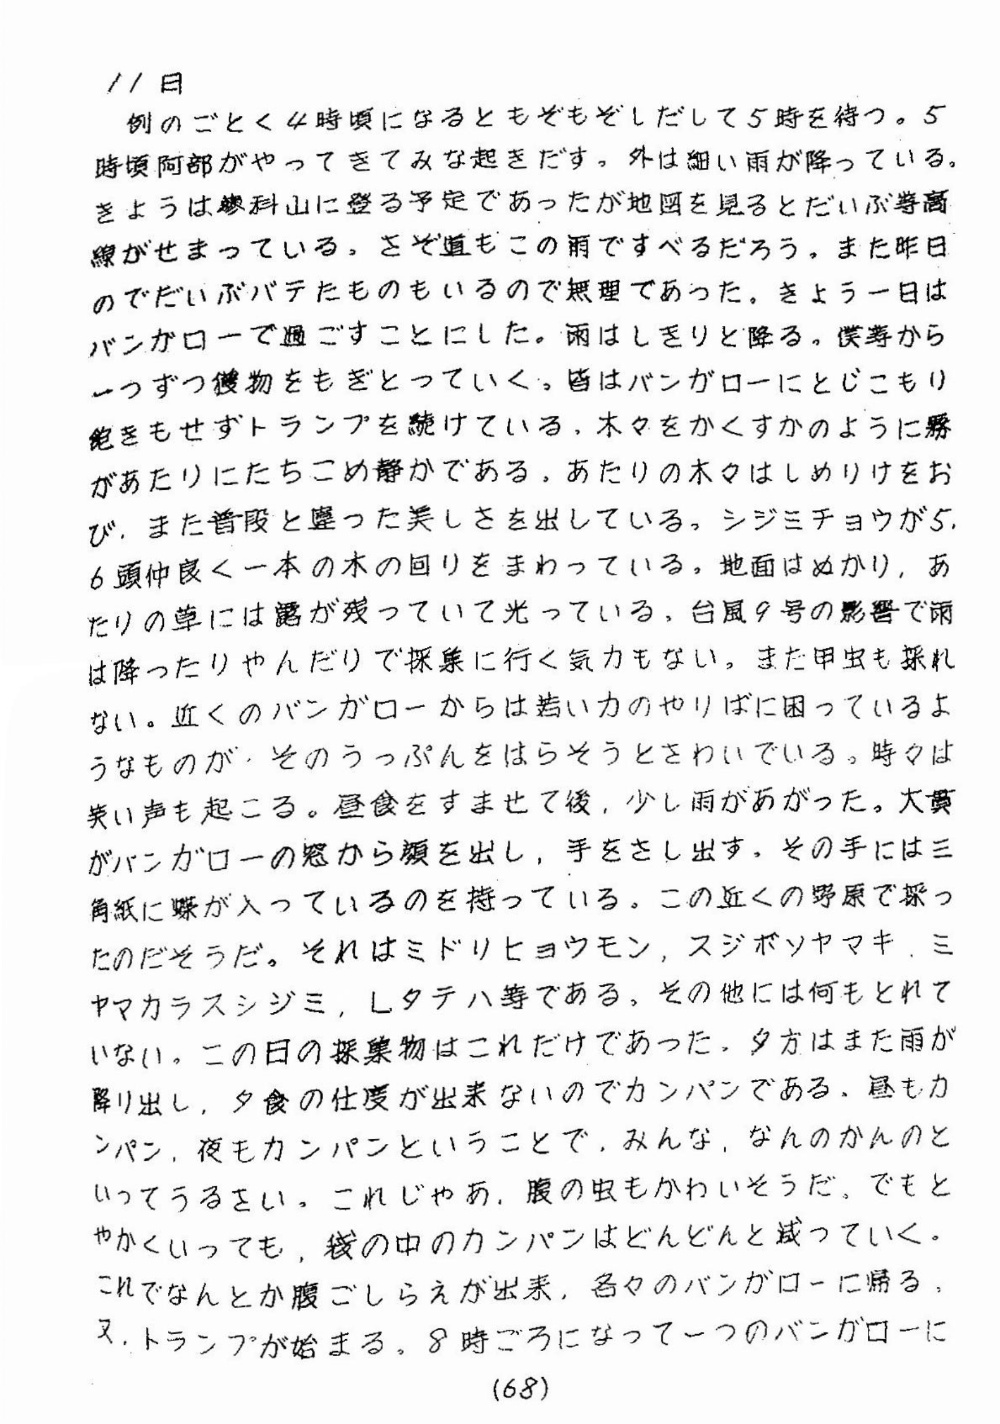 11日
例のごとく4時頃になるともぞもぞしだして5時を待つ。5
時頃阿部がやってきてみな起きだす。外は細い雨が降っている。
きょうは蓼科山に登る予定であったが地図を見るとだいぶ等高
線がせまっている。さぞ道もこの雨ですべるだろう。また昨日
のでだいぶバテたものもいるので無理であった。きょう一日は
バンガローで過ごすことにした。雨はしきりと降る。僕等から
一つずつ獲物をもぎとっていく。皆はバンガローにとじこもり
飽きもせずトランプを続けている。木々をかくすかのように霧
があたりにたちこめ静かである。あたりの木々はしめりけをお
び、また普段と違った美しさを出している。シジミチョウが5,
6頭仲良く一本の木の回りをまわっている。地面はぬかり、あ
たりの草には露が残っていて光っている。台風9号の影響で雨
は降ったりやんだりで採集に行く気力もない。また甲虫も採れ
ない。近くのバンガローからは若い力のやりばに困っているよ
うなものが、そのうっぷんをはらそうとさわいでいる。時々は
笑い声も起こる。昼食をすませて後、少し雨があがった。大貫
がバンガローの窓から顔を出し、手をさし出す。その手には三
角紙に蝶が入っているのを持っている。この近くの野原で採っ
たのだそうだ。それはミドリヒョウモン、スジボソヤマキ、ミ
ヤマカラスシジミ、Lタテハ等である。その他には何もとれて
いない。この日の採集物はこれだけであった。夕方はまた雨が
降り出し、夕食の仕度が出来ないのでカンパンである。昼もカ
ンパン、夜もカンパンということで、みんな、なんのかんのと
いってうるさい。これじゃあ、腹の虫もかわいそうだ。でもと
やかくいっても、袋の中のカンパンはどんどんと減っていく。
これでなんとか腹ごしらえが出来、各々のバンガローに帰る。
又、トランプが始まる。8時ごろになって一つのバンガローに
(68)